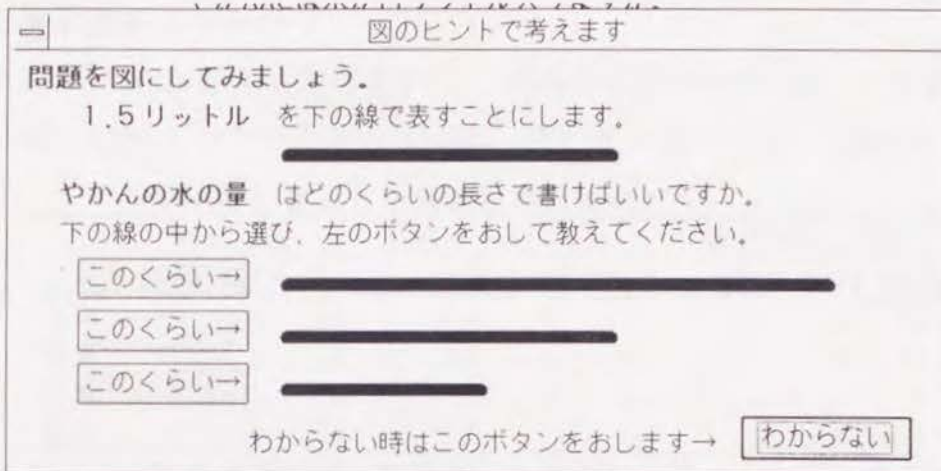 図のヒントで考えます
問題を図にしてみましょう。
1.5リットル を下の線で表すことにします。
やかんの水の量 はどのくらいの長さで書けばいいですか。
下の線の中から選び、左のボタンをおして教えてください。
このくらい→
このくらい→
このくらい→
わからない時はこのボタンをおします→ わからない